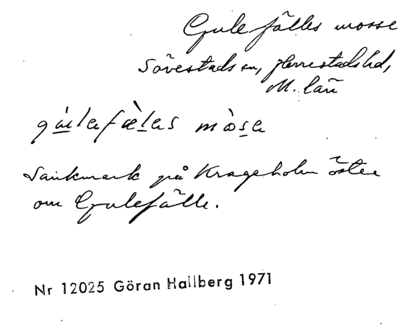 Gulefälles mosse
Sövestads sn, Herrestads hd,
M. län
gùlefæ̀les mòse
Sankmark på Krageholm öster
om Gulefälle.
Nr 12025 Göran Hallberg 1971